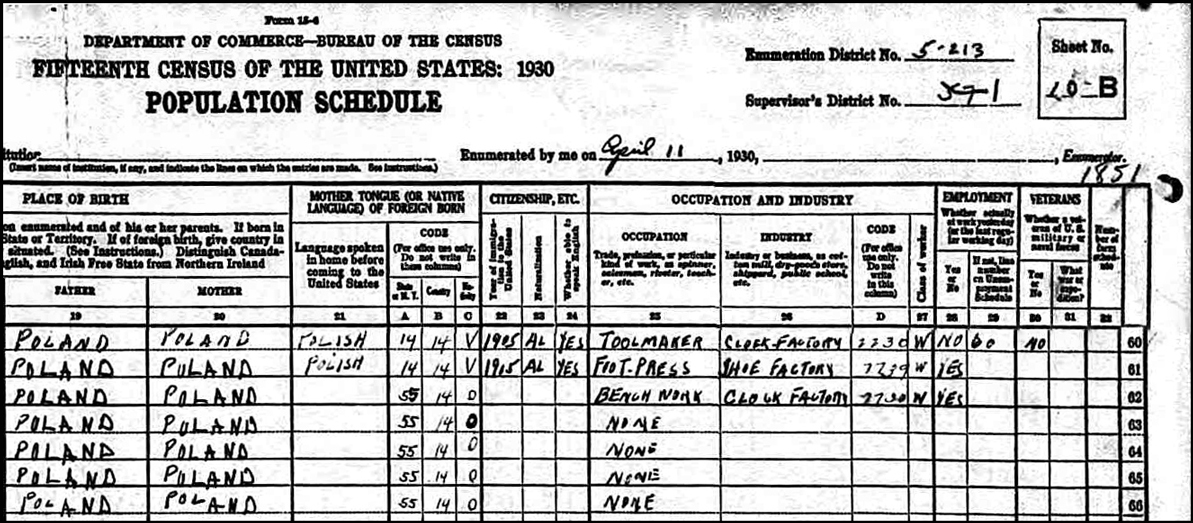 Form 15-6
DEPARTMENT OF COMMERCE—BUREAU OF THE CENSUS
FIFTEENTH CENSUS OF THE UNITED STATES: 1930
POPULATION SCHEDULE
Enumeration District No. 5-213
Supervisor's District No.
Sheet No.
B
Enumerated by me on April 11, 1930, Enumerator.
(Insert name of institution, if any, and indicate the lines on which the entries are made. See Instructions.)
1851
PLACE OF BIRTH
on enumerated and of his or her parents. If born in
State or Territory. If of foreign birth, give country in
situated. (See Instructions.) Distinguish Canada-
glish, and Irish Free State from Northern Ireland
FATHER MOTHER
19 20
MOTHER TONGUE (OR NATIVE
LANGUAGE) OF FOREIGN BORN
Language spoken
in home before
coming to the
United States
21
CODE
(For office use only.
Do not write in
these columns)
State
Country
A B C
CITIZENSHIP, ETC.
Year of immigra-
tion to the
United States
Naturalization
Whether able to
speak English
22 23 24
OCCUPATION AND INDUSTRY
OCCUPATION
Trade, profession, or particular
kind of work, as spinner,
salesman, riveter, teach-
er, etc.
25
INDUSTRY
Industry or business, as cot-
ton mill, dry-goods store,
shipyard, public school,
etc.
26
CODE
(For office
use only.
Do not
write
in this
column)
D
Class of worker
27
EMPLOYMENT
Whether actually
at work yesterday
(or the last regu-
lar working day)
Yes
or
No
If not, line
number
on Unem-
ployment
Schedule
28 29
VETERANS
Whether a vet-
eran of U.S.
military or
naval forces
Yes
or
No
What
war or
expe-
dition?
30 31
Num-
ber of
farm
sched-
ule
32
POLAND POLAND POLISH 14 14 V 1905 AL YES TOOLMAKER CLOCK FACTORY W NO 60 NO 60
POLAND POLAND POLISH 14 14 V 1915 AL YES FOOT-PRESS SHOE FACTORY 7739 W YES 61
POLAND POLAND 55 14 0 BENCH WORK CLOCK FACTORY W YES 62
POLAND POLAND 55 14 0 NONE 63
POLAND POLAND 55 14 0 NONE 64
POLAND POLAND 55 14 0 NONE 65
POLAND POLAND 55 14 0 NONE 66